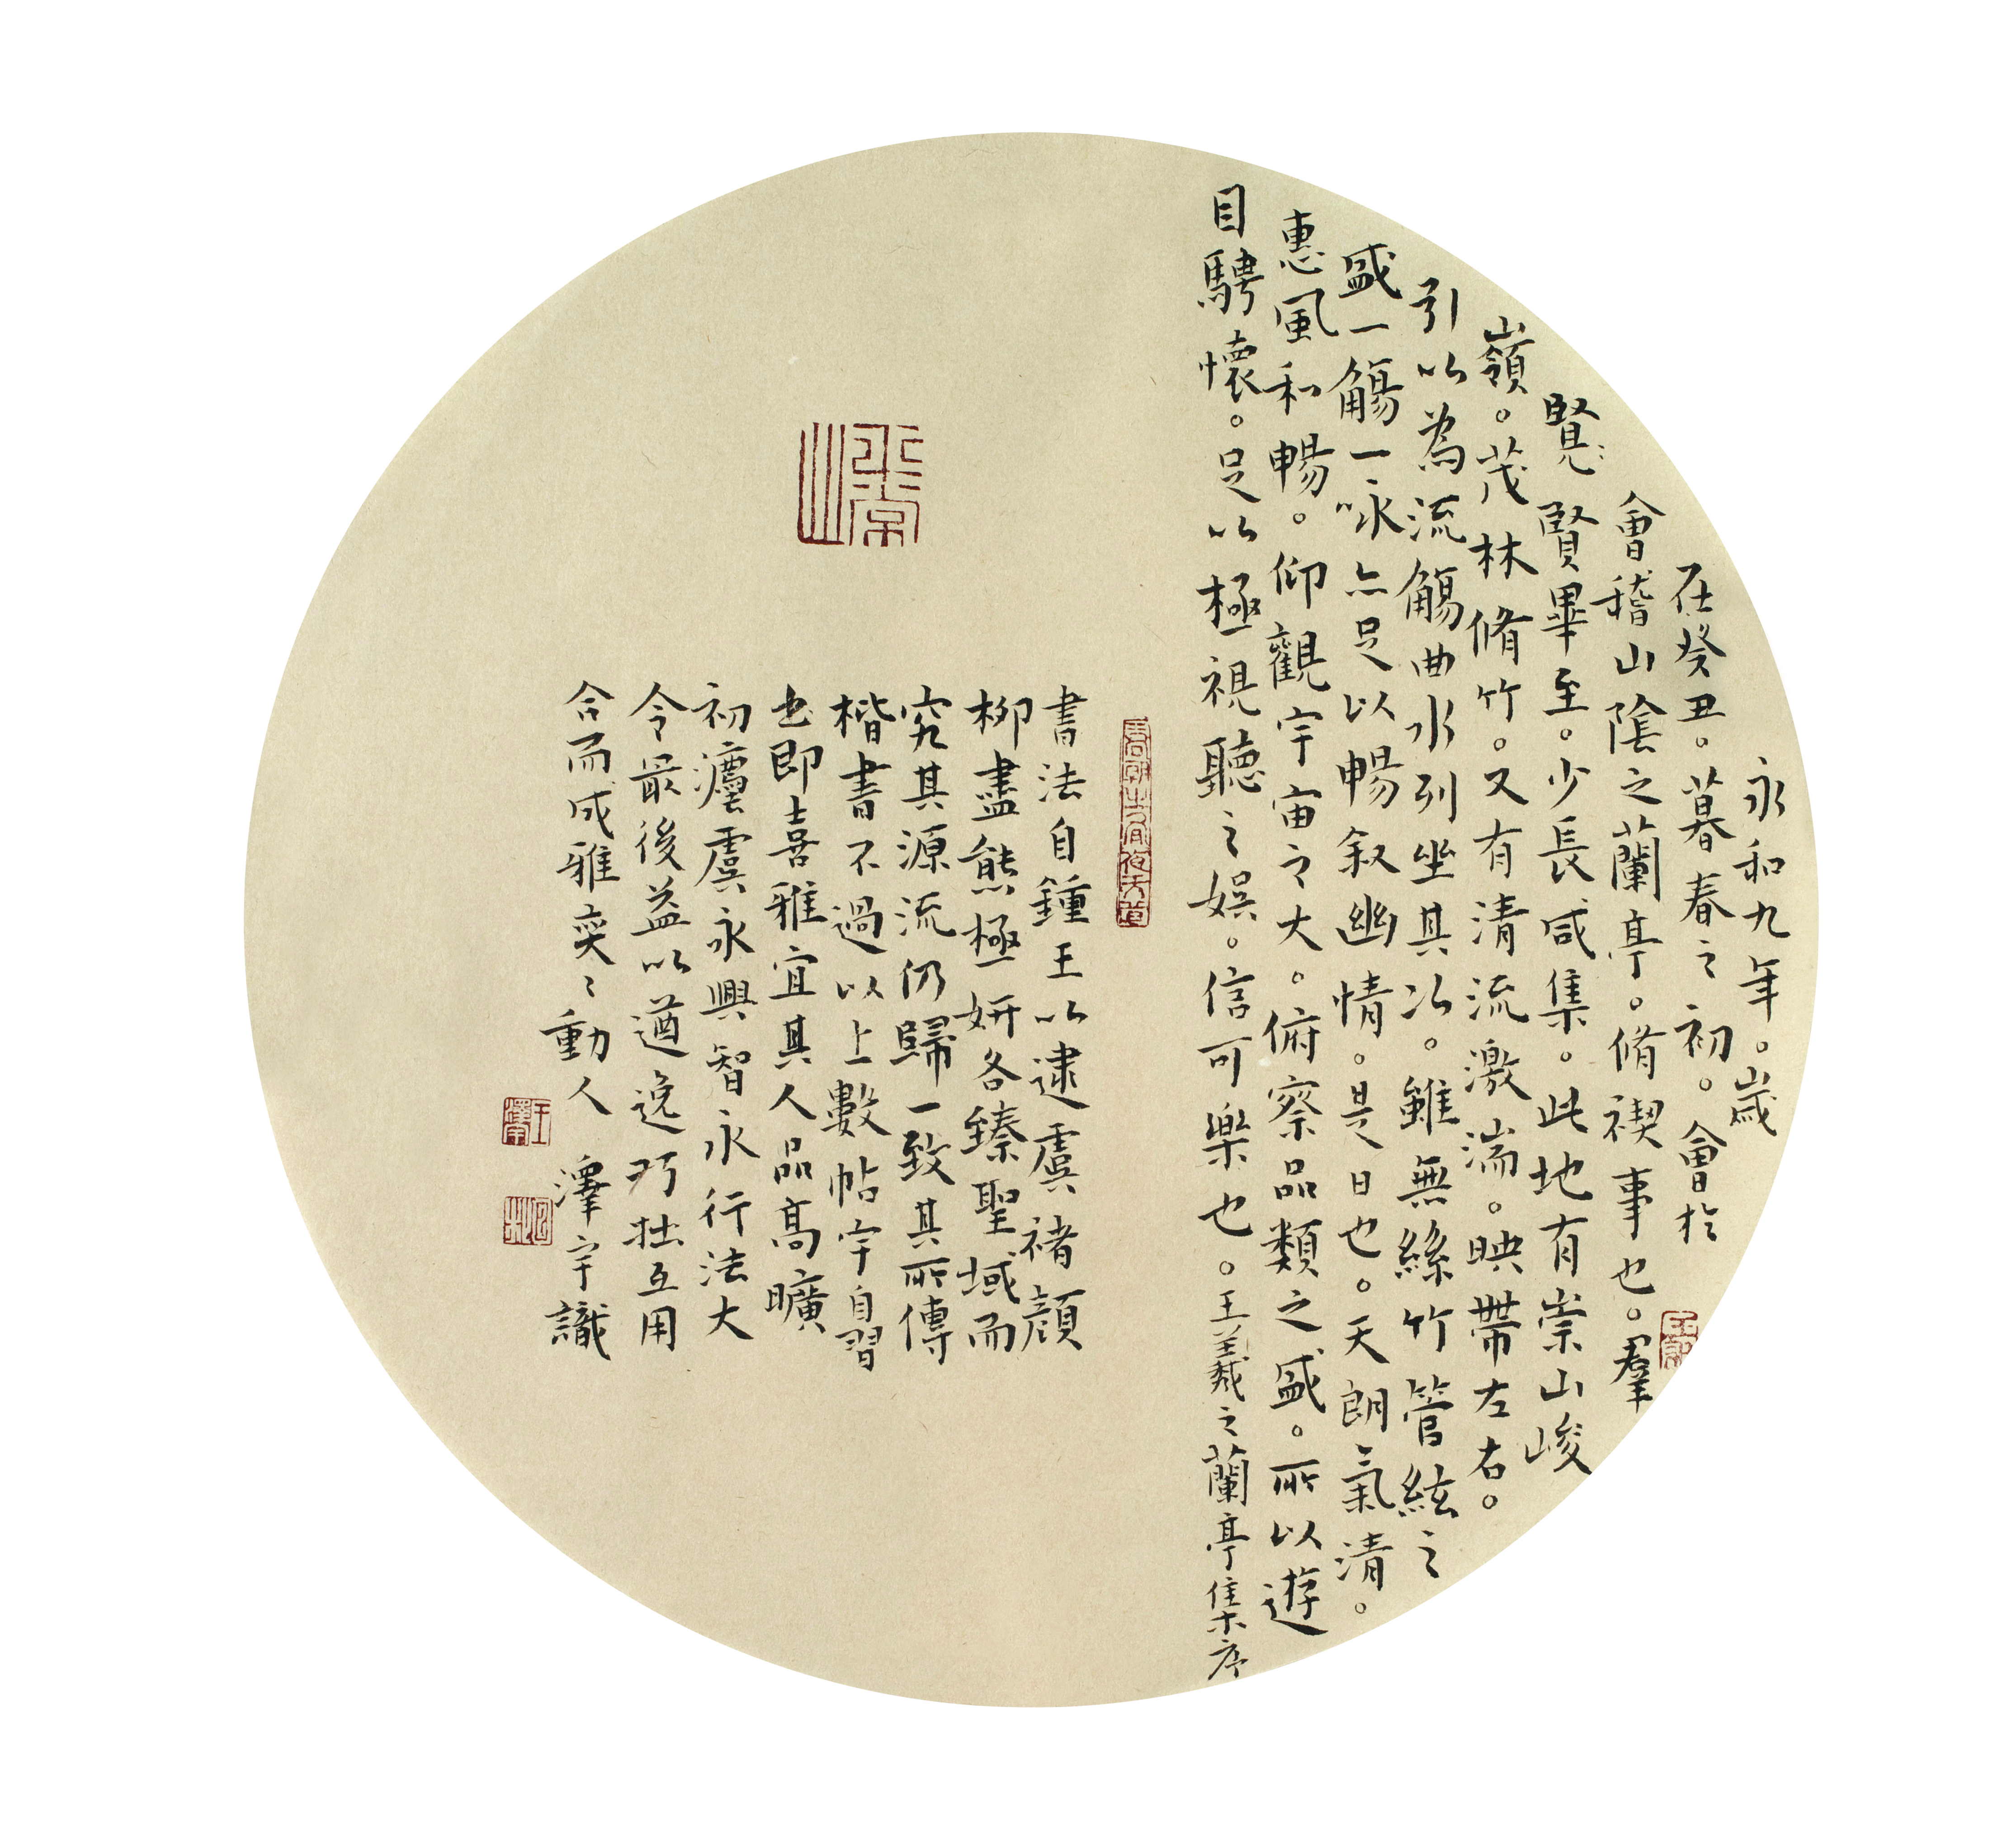 永和九年。歲
在癸丑。暮春之初。會於
會稽山陰之蘭亭。脩禊事也。羣
賢畢至。少長咸集。此地有崇山峻
嶺。茂林脩竹。又有清流激湍。映帶左右。
引以為流觴曲水列坐其次。雖無絲竹管絃之
盛一觴一咏亦足以暢叙幽情。是日也。天朗氣清。
惠風和暢。仰觀宇宙之大。俯察品類之盛。所以遊
目騁懷。足以極視聽之娛。信可樂也。王羲之蘭亭集序
書法自鍾王以逮虞褚顔
柳盡熊極妍各臻聖域而
究其源流仍歸一致其所傳
楷書不過以上數帖宇自習
也即喜雅宜其人品高曠
初灋虞永興智永行法大
令最後益以遒逸巧拙互用
合而成雅奕〻動人 澤宇識
王澤宇